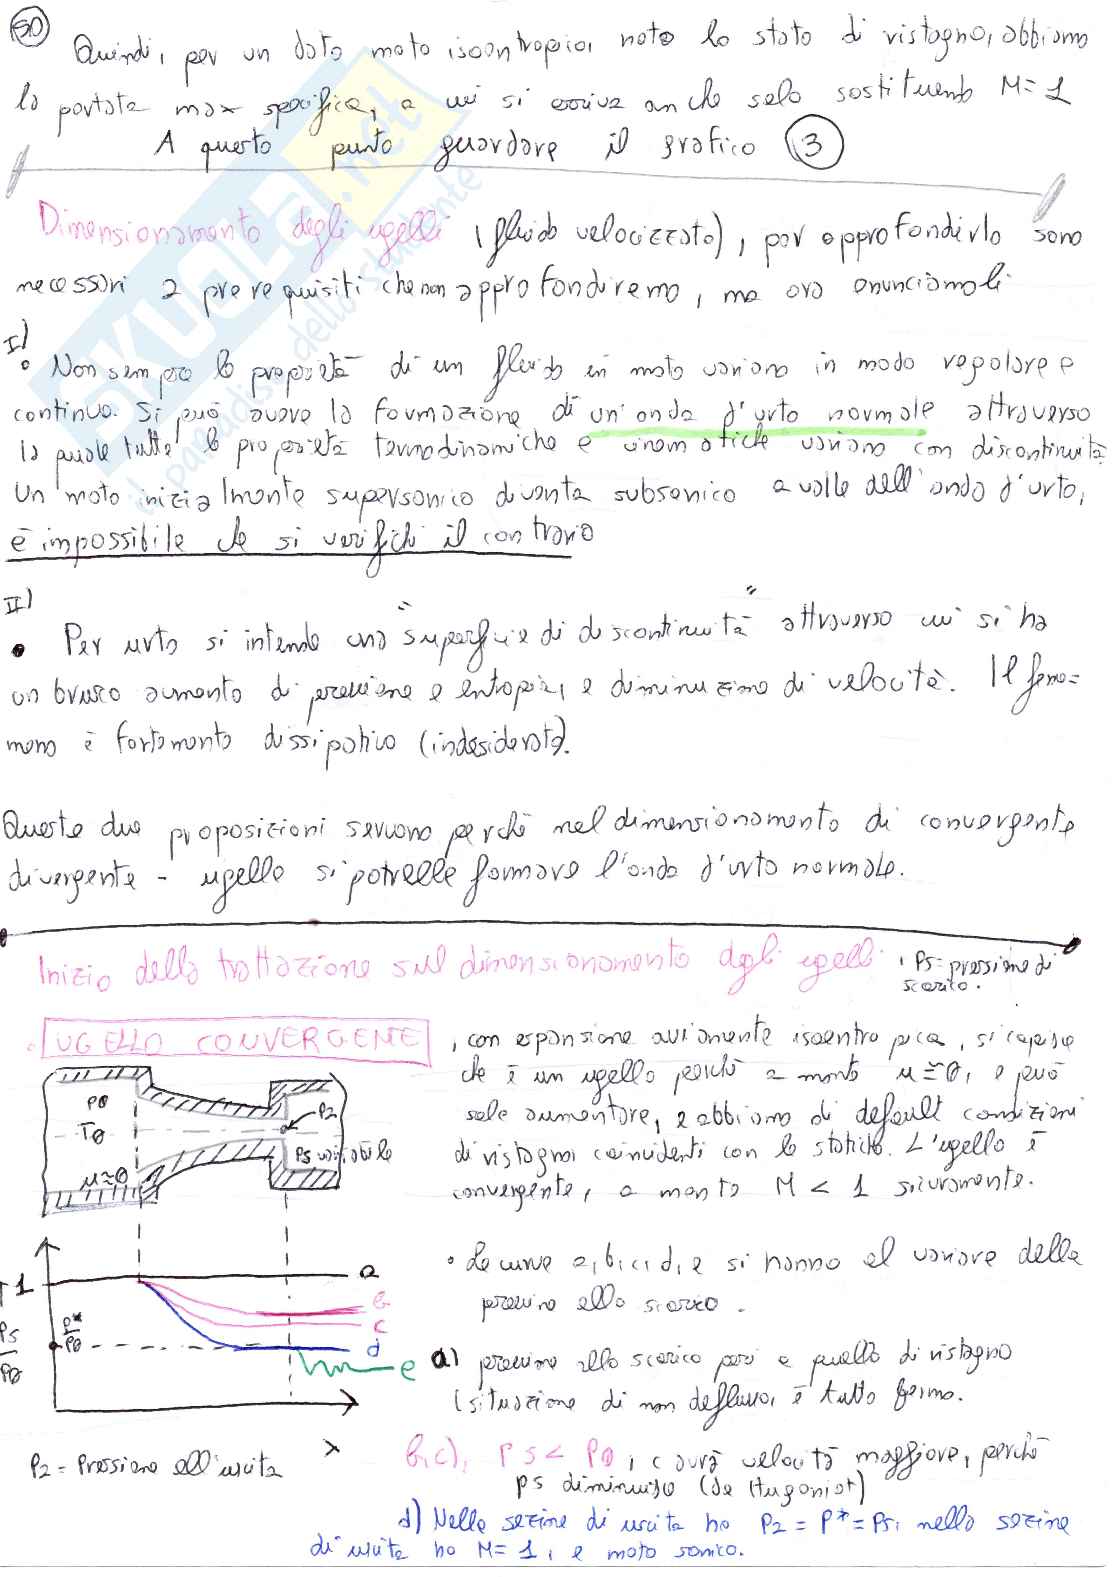 50
Quindi, per un dato moto isoentropico, noto lo stato di ristagno, abbiamo
la portata max specifica, a cui si arriva anche solo sostituendo M=1
A questo punto guardare il grafico 3
Dimensionamento degli ugelli (fluido velocizzato), per approfondirlo sono
necessari 2 prerequisiti che non approfondiremo, ma ora enunciamoli
I)
• Non sempre le proprietà di un fluido in moto variano in modo regolare e
continuo. Si può avere la formazione di un'onda d'urto normale attraverso
la quale tutte le proprietà termodinamiche e cinematiche variano con discontinuità.
Un moto inizialmente supersonico diventa subsonico a valle dell'onda d'urto,
è impossibile che si verifichi il contrario
II)
• Per urto si intende una "superficie di discontinuità" attraverso cui si ha
un brusco aumento di pressione e entropia, e diminuzione di velocità. Il feno=
meno è fortemente dissipativo (indesiderato).
Queste due proposizioni servono perchè nel dimensionamento di convergente
divergente - ugello si potrebbe formare l'onda d'urto normale.
Inizio della trattazione sul dimensionamento degli ugelli, Ps=pressione di
scarico.
UGELLO CONVERGENTE, con espansione ovviamente isoentropica, si capisce
che è un ugello perchè a monte u≅0, e può
solo aumentare, e abbiamo di default condizioni
di ristagno coincidenti con le statiche. L'ugello è
convergente, a monte M < 1 sicuramente.
P0
T0
u≅0
P2
Ps variabile
• Le curve a, b, c, d, e si hanno al variare della
pressione allo scarico.
1
Ps/P0
P*/P0
a
b
c
d
e
a) pressione allo scarico pari a quello di ristagno
(situazione di non deflusso, è tutto fermo.
P2 = Pressione all'uscita
b,c), Ps < P0, c avrà velocità maggiore, perchè
ps diminuisce (da Hugoniot)
d) Nella sezione di uscita ho P2 = P* = Ps, nella sezione
di uscita ho M=1, e moto sonico.
SKUOLA.net
il paradiso dello studente